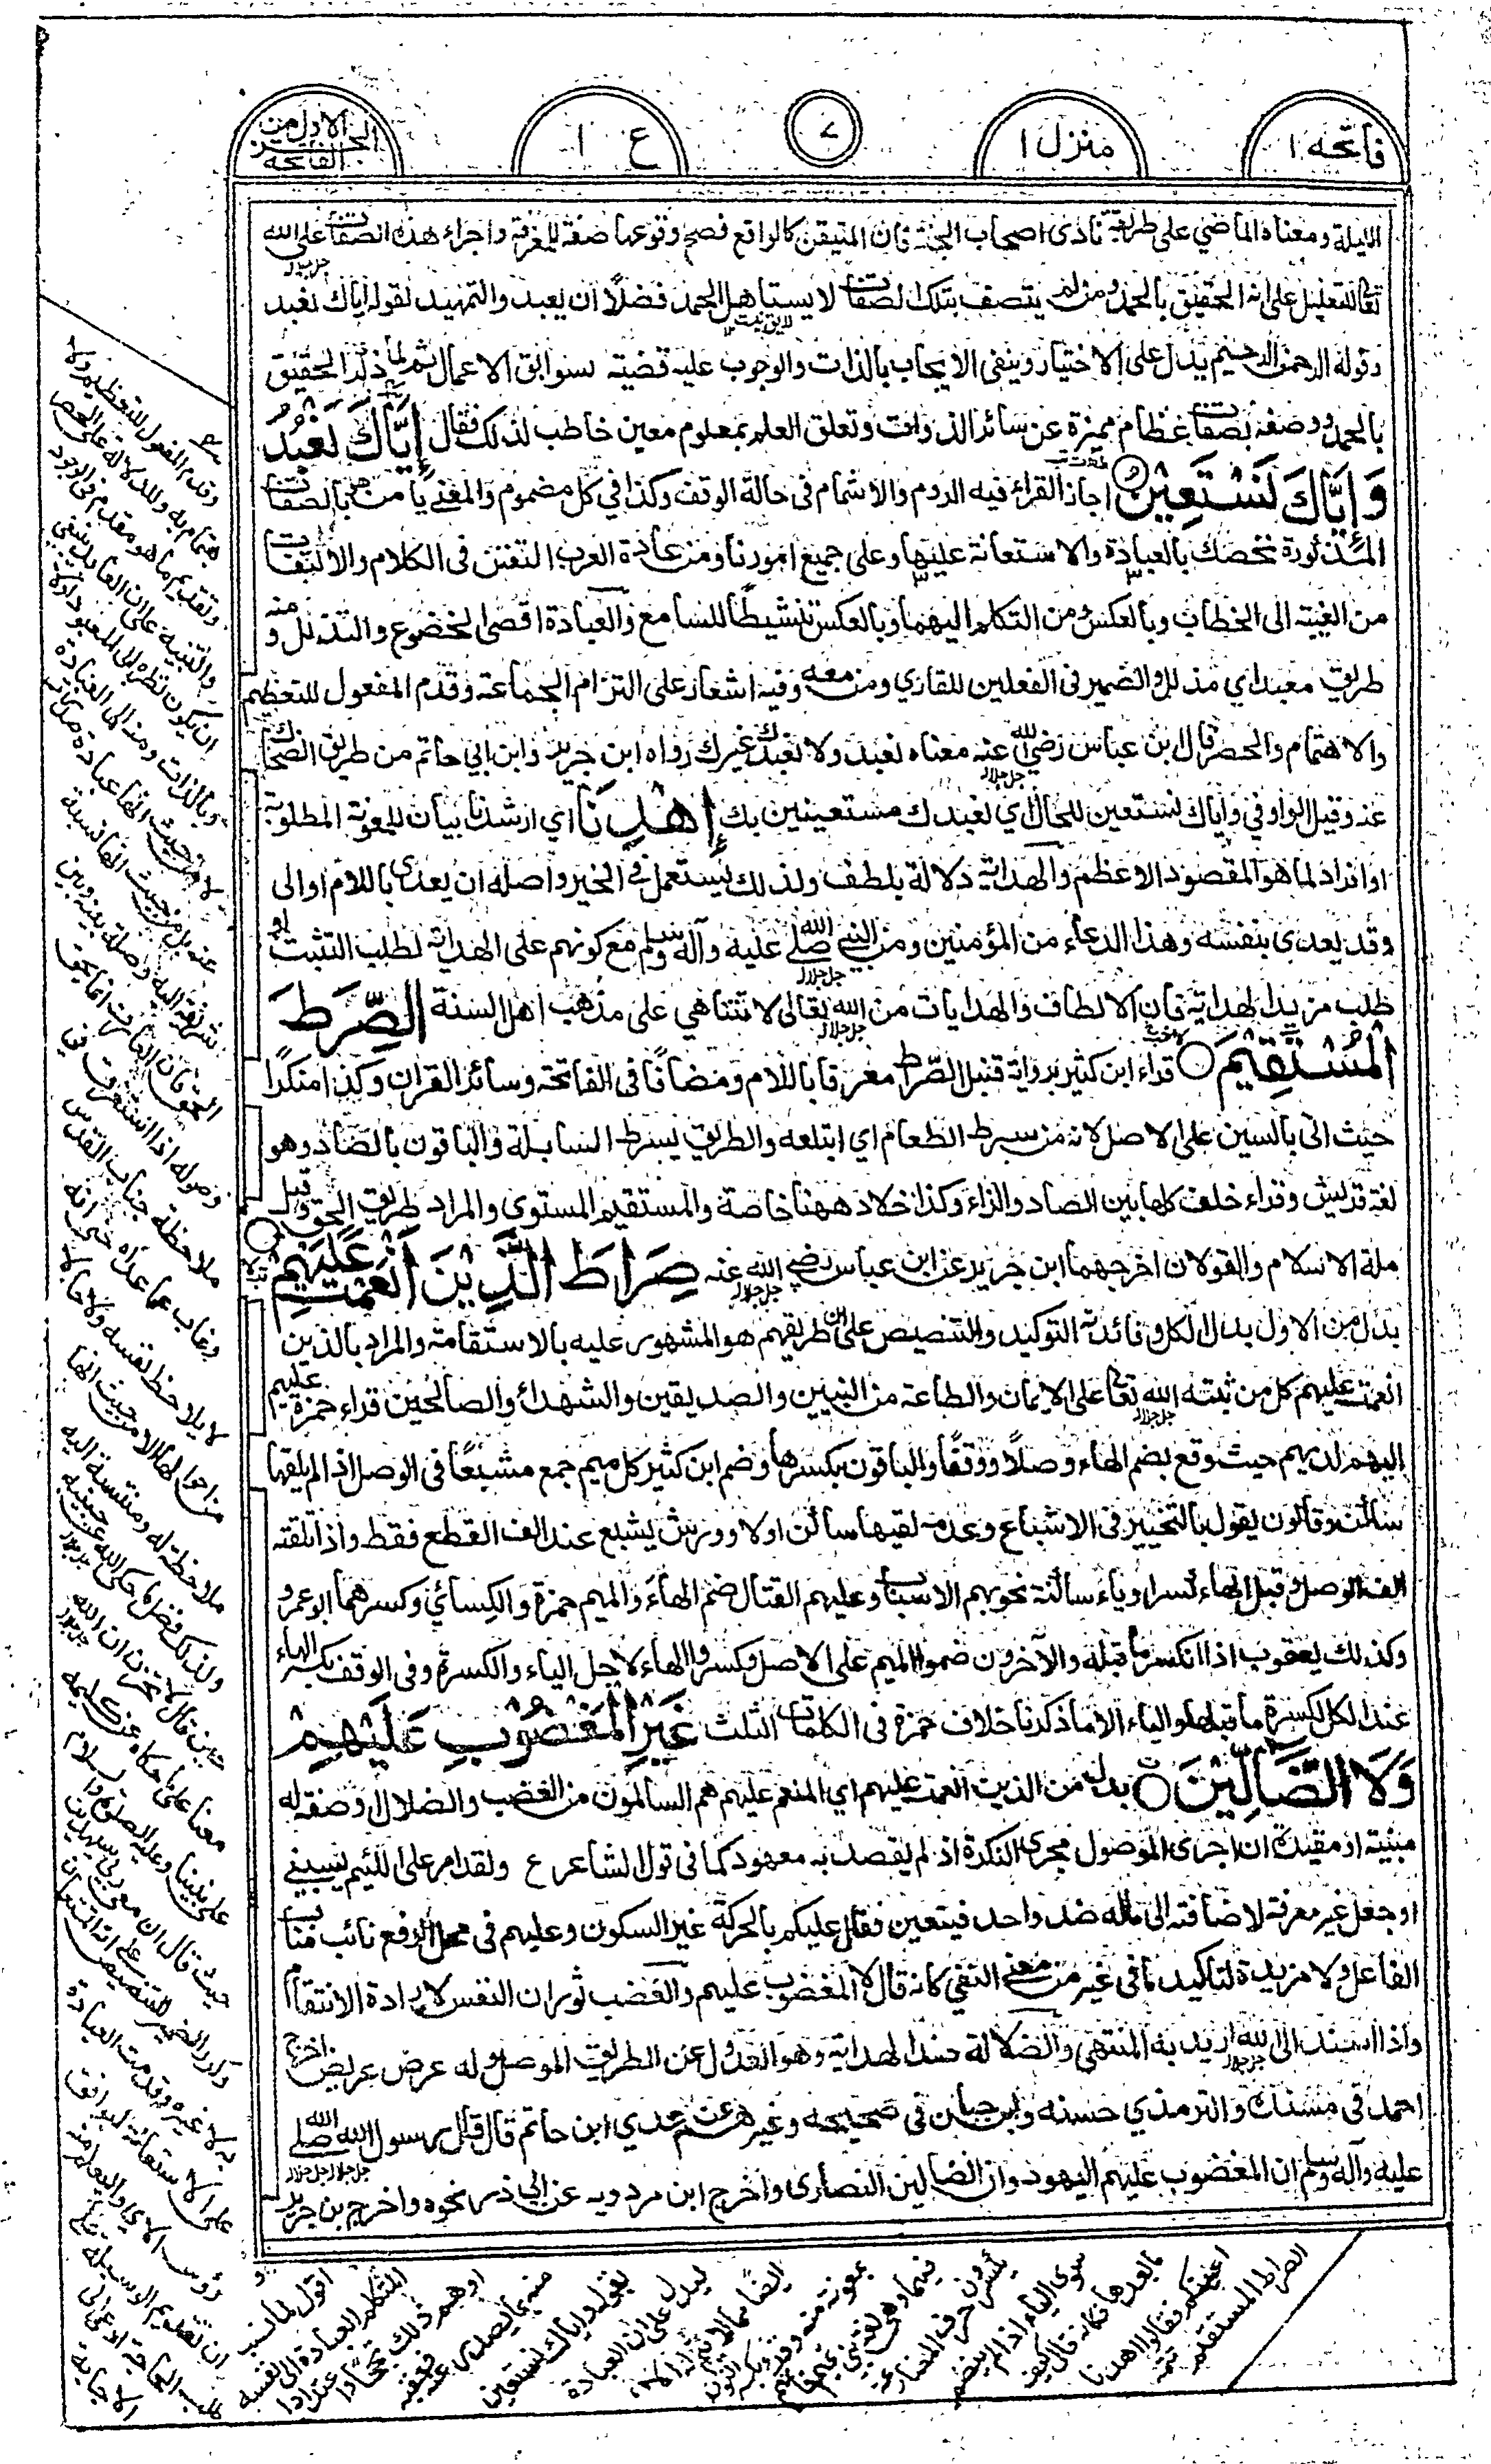 فاتحه ١
منزل ١
٧
ع ١
الجز الاول من الفاتحه
الليلة ومعناه الماضي على طريقة نادى اصحاب الجنة فان المتيقن كالواقع فصح وقوعها صفة للمعرفة واجراء هذه الصفات على الله
تعالى للتعليل على انه الحقيق بالحمد ومن لم يتصف بتلك الصفات لا يستاهل الحمد فضلاً ان يعبد والتمهيد لقوله اياك نعبد
وقوله الرحمن الرحيم يدل على الاختيار وينفى الايجاب بالذات والوجوب عليه قضية لسوابق الاعمال ثم لما ذكر الحقيق
بالحمد ووصفه بصفات عظام مميزة عن سائر الذوات وتعلق العلم بمعلوم معين خاطب لذلك فقال إِيَّاكَ نَعْبُدُ
وَإِيَّاكَ نَسْتَعِيْنُ اجاز القراء فيه الروم والاشمام فى حالة الوقف وكذا في كل مضموم والمعنى يا من هذا بالصفات
المذكورة نخصك بالعبادة والاستعانة عليها وعلى جميع امورنا ومن عادة العرب التفنن فى الكلام والالتفات
من الغيبة الى الخطاب وبالعكس ومن التكلم اليهما وبالعكس تنشيطًا للسامع والعبادة اقصى الخضوع والتذلل ومنه
طريق معبد اي مذلل والضمير فى الفعلين للقاري ومن معه وفيه اشعار على التزام الجماعة وقدم المفعول للتعظيم
والاهتمام والحصر قال بن عباس رضي الله عنه معناه نعبدك ولا نعبد غيرك رواه ابن جرير وابن ابي حاتم من طريق الضحاك
عنه وقيل الواو في واياك نستعين للحال اي نعبدك مستعينين بك إِهْدِنَا اي ارشدنا بيان للمعونة المطلوبة
او افراد لما هو المقصود الاعظم والهداية دلالة بلطف ولذلك يستعمل في الخير واصله ان يعدى باللام او الى
وقد يعدى بنفسه وهذا الدعاء من المؤمنين ومن النبي صلى الله عليه وآله وسلم مع كونهم على الهداية لطلب التثبت او
طلب مزيد الهداية فان الالطاف والهدايات من الله تعالى لا تتناهي على مذهب اهل السنة الصِّرَاطَ
الْمُسْتَقِيْمَ قراء ابن كثير برواية قنبل الصراط معرفا باللام ومضافًا فى الفاتحة وسائر القران وكذا منكرًا
حيث اتى بالسين على الاصل لانه من سرط الطعام اي ابتلعه والطريق يسرط السابلة والباقون بالصاد وهو
لغة قريش وقراء خلف كلها بين الصاد والزاء وكذا خلاد ههنا خاصة والمستقيم المستوى والمراد طريق الحق وقيل
ملة الاسلام والقولان اخرجهما ابن جرير عن ابن عباس رضي الله عنه صِرَاطَ الَّذِيْنَ أَنْعَمْتَ عَلَيْهِمْ
بدل من الاول بدل الكل وفائدته التوكيد والتنصيص على ان طريقهم هو المشهور عليه بالاستقامة والمراد بالذين
انعمت عليهم كل من ثبته الله تعالى على الايمان والطاعة من النبيين والصديقين والشهداء والصالحين قراء حمزة عليهم
اليهم لديهم حيث وقع بضم الهاء وصلاً ووقفًا والباقون بكسرها وضم ابن كثير كل ميم جمع مشبعًا في الوصل اذا لم يلقها
ساكن وقالون يقول بالتخيير فى الاشباع وعدمه لقيها ساكن او لا وورش يشبع عند الف القطع فقط واذا تلقته
الف الوصل وقبل الهاء كسر او ياء ساكنة نحو بهم الاسباب وعليهم القتال ضم الهاء والميم حمزة والكسائي وكسرهما ابو عمرو
وكذلك يعقوب اذا انكسر ما قبله والآخرون ضموا الميم على الاصل وكسروا الهاء لاجل الياء والكسرة وفى الوقف بكسر الهاء
عند الكل لكسرة ما قبلها والياء الا ما ذكرنا خلاف حمزة فى الكلمات الثلث غَيْرِ الْمَغْضُوْبِ عَلَيْهِمْ
وَلَا الضَّالِّيْنَ بدل من الذين انعمت عليهم اي المنعم عليهم هم السالمون من الغضب والضلال او صفة له
مبينة او مقيدة ان اجرى الموصول مجرى النكرة اذ لم يقصد به معهود كما فى قول الشاعر ع ولقد امر على اللئيم يسبنى
او جعل غير معرفة لاضافته الى ماله ضد واحد فيتعين فقال عليكم بالحركة غير السكون وعليهم فى محل الرفع نائب مناب
الفاعل ولا مزيدة لتاكيد ما فى غير من معنى النفي كانه قال لا المغضوب عليهم والغضب ثوران النفس لارادة الانتقام
واذا اسند الى الله اريد به المنتهى والضلالة ضد الهداية وهو العدول عن الطريق الموصل وله عرض عريض اخرج
احمد في مسنده والترمذي حسنه وابن حبان في صحيحه وغيرهم عن عدي ابن حاتم قال قال رسول الله صلى الله
عليه وآله وسلم ان المغضوب عليهم اليهود وان الضالين النصارى واخرج ابن مردويه عن ابي ذر نحوه واخرج بن جرير
وقدم المفعول للتعظيم والا
هتمام به وللدلالة على الحصر
وتقديم ما هو مقدم فى الوجود
والتنبيه على ان العابد ينبغي
ان يكون نظره الى المعبود اولا
وبالذات ومنه الى العبادة
لا من حيث انها عبادة صدرت
عنه بل من حيث انها نسبة
شريفة اليه ووصلة بينه وبين
الحق فان العارف انما يحق
وصوله اذا استغرق في
ملاحظة جناب القدس
وغاب عما عداه حتى انه
لا يلاحظ نفسه ولا حالا
من احوالها الا من حيث انها
ملاحظة له ومنتسبة اليه
ولذلك فضل ما حكى الله عن حبيبه
حين قال لا تحزن ان الله
معنا على ما حكاه عن كليمه
على نبينا وعليه الصلوة والسلام
حيث قال ان معي ربي سيهدين
وكرر الضمير للتنصيص على انه المستعان
به لا غيره وقدمت العبادة
على الاستعانة ليوافق
رؤس الآي ويعلم منه
ان تقديم الوسيلة على
طلب الحاجة ادعى الى
الاجابة
اقول لما نسب
المتكلم العبادة الى نفسه
اوهم ذلك تبجحًا واعتدادا
منه بما يصدر عنه فعقبه
بقوله واياك نستعين
ليدل على ان العبادة
ايضًا مما لا يتم الا
بمعونة منه وقرئ بكسر النون
فيهما وهي لغة بني تميم فانهم
يكسرون حرف المضارعة
سوى الياء اذا لم ينضم
ما بعدها فكانه قال كيف
اعينكم فقالوا اهدنا
الصراط المستقيم